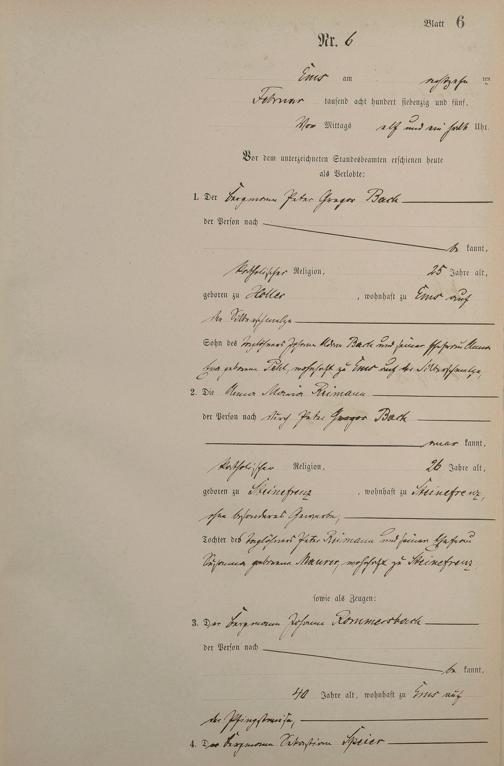 Blatt 6
Nr. 6
Ems am achtzehn ten
Februar tausend acht hundert siebenzig und fünf.
Vor Mittags elf und ein halb Uhr.
Vor dem unterzeichneten Standesbeamten erschienen heute
als Verlobte:
1. Der Bergmann Peter Gregor Bach
der Person nach
be kannt,
katholischer Religion, 25 Jahre alt,
geboren zu Holler, wohnhaft zu Ems auf
der Silberschmelze
Sohn des Taglöhners Johann Adam Bach und seiner Ehefrau Anna
Eva geborene wohnhaft zu Ems auf der Silberschmelze,
2. Die Anna Maria Reimann
der Person nach durch Peter Gregor Bach
kannt,
katholischer Religion, 26 Jahre alt,
geboren zu Steinefrenz, wohnhaft zu Steinefrenz,
ohne besonderes Gewerbe,
Tochter des Taglöhners Peter Reimann und seiner Ehefrau
Susanna geborene Maurer, wohnhaft zu Steinefrenz
sowie als Zeugen:
3. Der Bergmann Johann Rommersbach
der Person nach
be kannt,
40 Jahre alt, wohnhaft zu Ems auf
der Pfingstwiese,
4. Der Bergmann Sebastian Speier